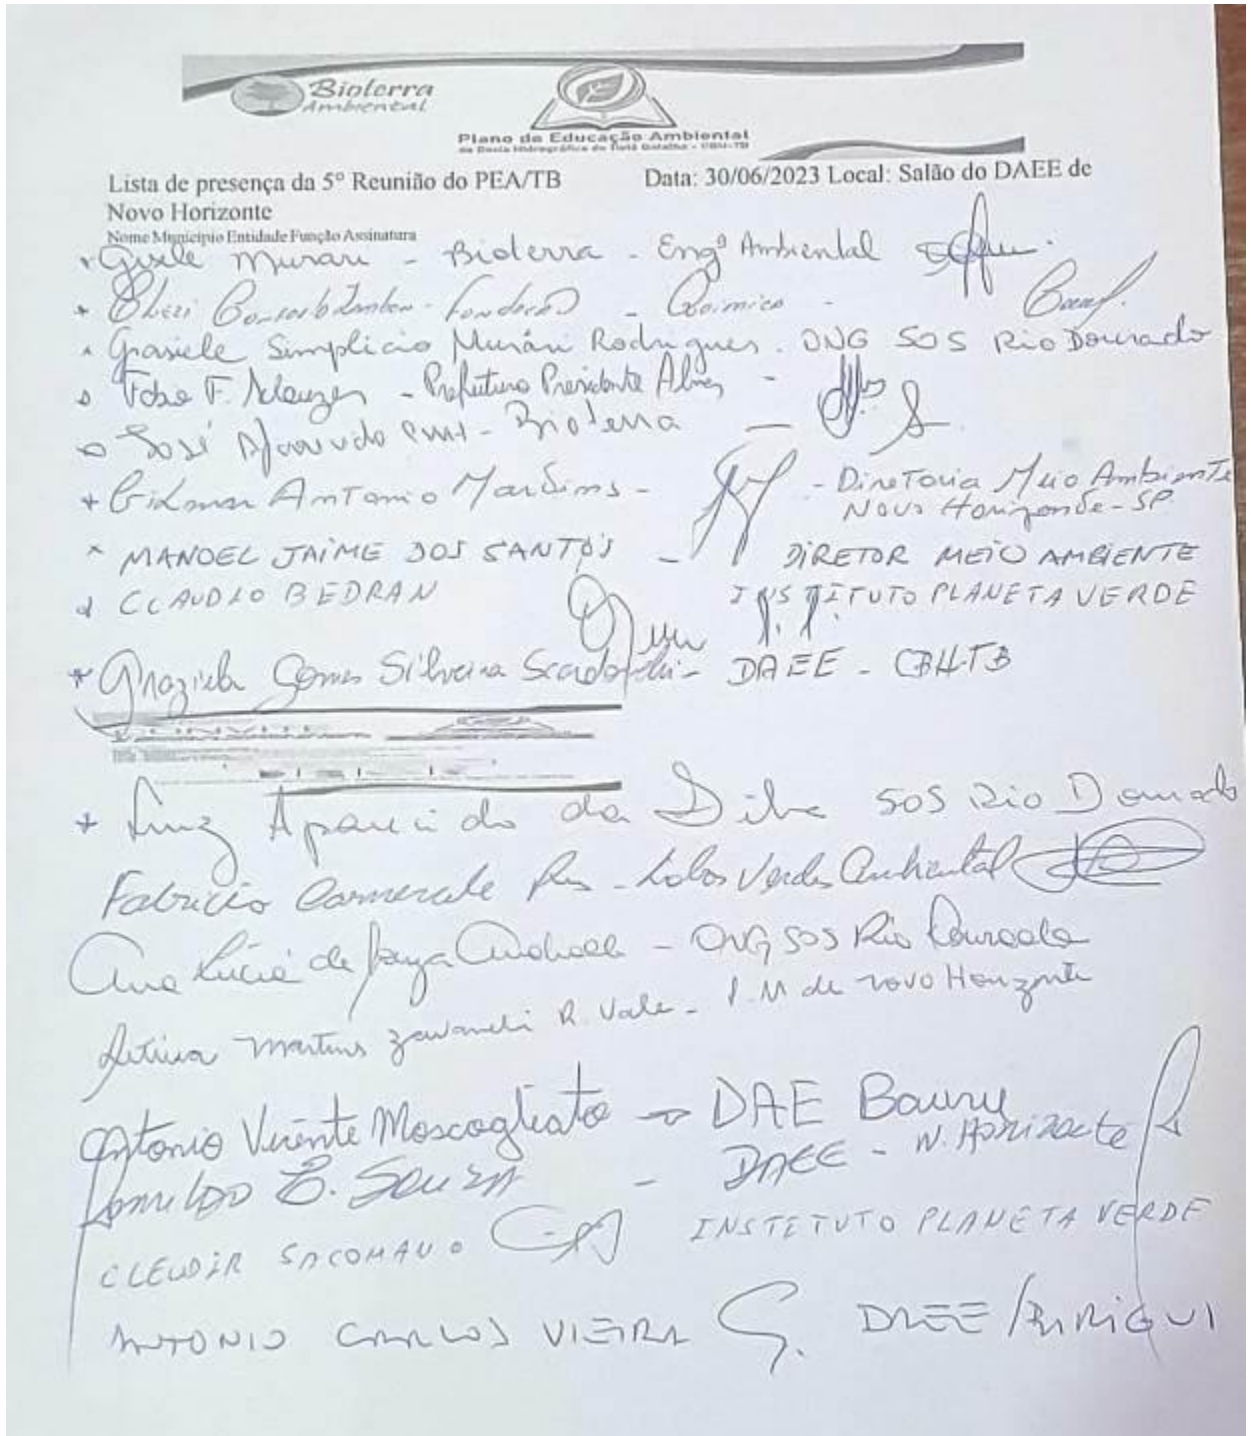 Bioterra
Ambiental
Plano de Educação Ambiental
Lista de presença da 5º Reunião do PEA/TB Data: 30/06/2023 Local: Salão do DAEE de
Novo Horizonte
Nome Município Entidade Função Assinatura
Gisele Murari - Bioterra - Engª Ambiental
Químico -
Grasiele Simplicio Murári Rodrigues. ONG SOS Rio Dourado
F. - Prefeitura Presidente Alves -
José Aparecido - Bioterra -
Gilmar Antonio Martins - - Diretoria Meio Ambiente
Novo Horizonte - SP
MANOEL JAIME DOS SANTOS - DIRETOR MEIO AMBIENTE
CLAUDIO BEDRAN INSTITUTO PLANETA VERDE
Graziela Gomes Silveira - DAEE - CBH-TB
Luiz Aparecido da Silva SOS Rio Dourado
Fabricio - Lobos Verdes Ambiental
Ana Lúcia de Souza Andrade - ONG SOS Rio Dourado
Martins Zavanelli R. Vale - P.M de novo Horizonte
Antonio Vicente Moscogliato → DAE Bauru
E. SOUZA - DAEE - N. HORIZONTE
CLEUDIR SACOMANO INSTITUTO PLANETA VERDE
ANTONIO CARLOS VIEIRA DAEE/BIRIGUI